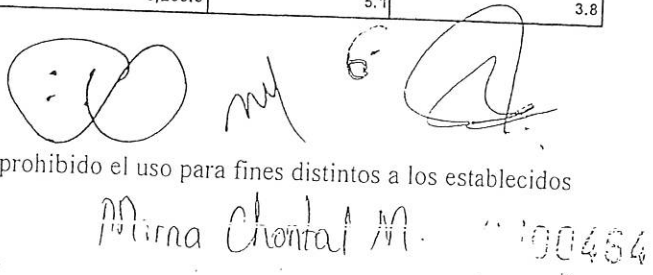 5.1 3.8
prohibido el uso para fines distintos a los establecidos
Mirna Chontal M. 00464